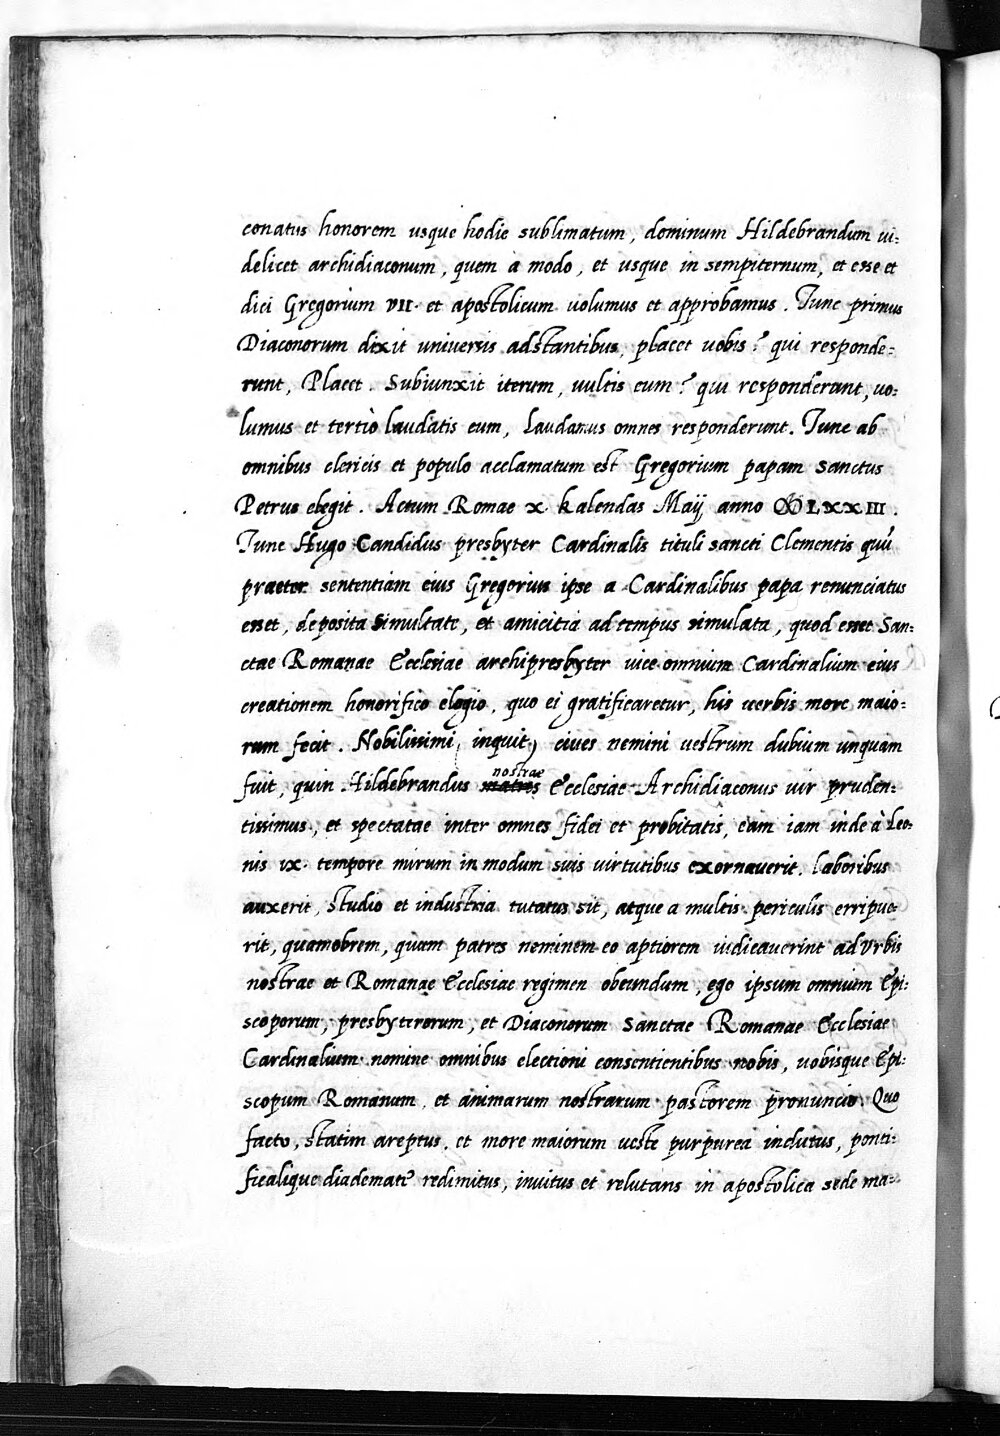 conatus honorem usque hodie sublimatum, dominum Hildebrandum ui:
delicet archidiaconum, quem a modo, et usque in sempiternum, et esse et
dici Gregorium VII. et apostolicum uolumus et approbamus. Tunc primus
Diaconorum dixit uniuersis adstantibus, placet uobis? qui responde:
runt, Placet. Subiunxit iterum, uultis eum? qui responderunt, uo:
lumus et tertiò laudatis eum, Laudamus omnes responderunt. Tunc ab
omnibus clericis et populo acclamatum est Gregorium papam sanctus
Petrus elegit. Actum Romae X. kalendas Maij anno ↀLXXIII.
Tunc Hugo Candidus presbyter Cardinalis tituli sancti Clementis
praeter sententiam eius Gregorius ipse a Cardinalibus papa renunciatus
esset, deposita simultate, et amicitia ad tempus simulata, quod esset San:
ctae Romanae Ecclesiae archipresbyter uice omnium Cardinalium eius
creationem honorifico elogio, quo ei gratificaretur, his uerbis more maio:
rum fecit. Nobilissimi, inquit, ciues nemini uestrum dubium unquam
fuit, quin Hildebrandus nostrae Ecclesiae Archidiaconus uir pruden:
tissimus, et spectatae inter omnes fidei et probitatis, eam iam inde à Leo:
nis IX. tempore mirum in modum suis uirtutibus exornauerit. laboribus
auxerit, studio et industria tutatus sit, atque a multis periculis erripue
rit, quamobrem, quum patres neminem eo aptiorem iudicauerint ad Vrbis
nostrae et Romanae Ecclesiae regimen obeundum, ego ipsum omnium Epi:
scoporum, presbyterorum, et Diaconorum Sanctae Romanae Ecclesiae
Cardinalium nomine omnibus electioni consentientibus nobis, uobisque Epi:
scopum Romanum, et animarum nostrarum pastorem pronuncio. Quo
facto, statim areptus, et more maiorum ueste purpurea indutus, ponti:
ficalique diademate redimitus, inuitus et relutans in apostolica sede ma: